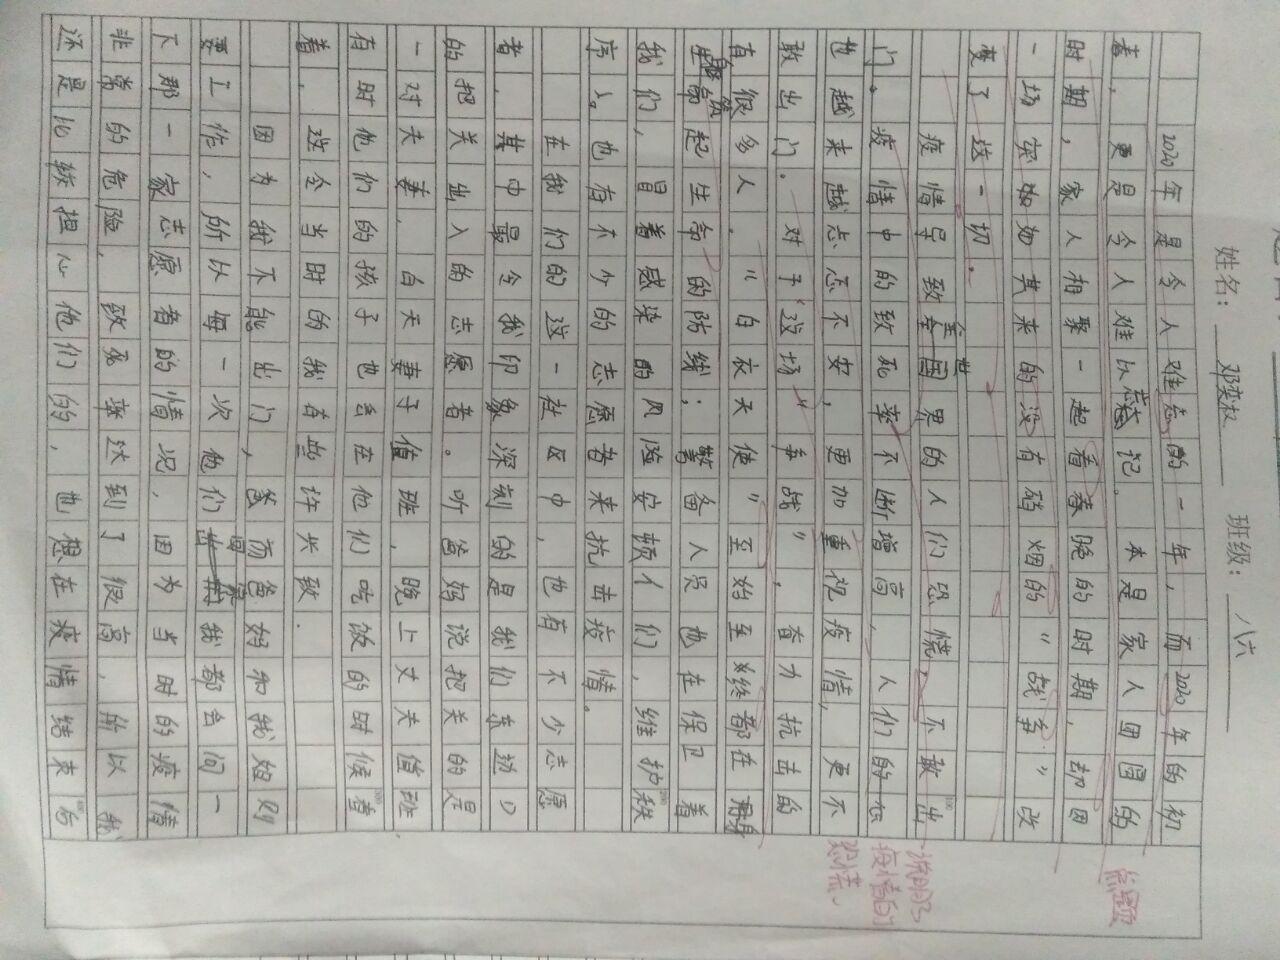 姓名：邓奕权 班级：八六
2020年是令人难忘的一年，而2020年的初
春，更是令人难以忘记．本是家人团圆的
时期，家人相聚一起看春晚的时期，却因
一场突如如其来的没有硝烟的“战争”改
变了这一切．
疫情导致全世界的人们恐慌，不敢出
门。疫情中的致死率不断增高，人们的心
也越来越忐忑不安，更加重视疫情，更不
敢出门．对于“这场”争战”，奋力抗击的
有很多人．“白衣天使”至始至终都在用身
躯筑起生命的防线；警备人员也在保卫着
我们，冒着感染的风险安顿人们，维护秩
序；也有不少的志愿者来抗击疫情。
在我们的这一社区中也有不少志愿
者，其中最令我印象深刻的是我们东边门
的把关出入的志愿者。听爸妈说把关的是
一对夫妻，白天妻子值班，晚上丈夫值班
有时他们的孩子也会在他们吃饭的时候看
着，这令当时的我有些许兴致．
因为我不能出门，而爸妈和我姐则
要工作，所以每一次他们回家我都会问一
下那一家志愿者的情况，因为当时的疫情
非常的危险，致死率达到了很高，所以我
还是比较担心他们的，也想在疫情结束后
点题
说明了
疫情的
恐慌
100
200
300
400